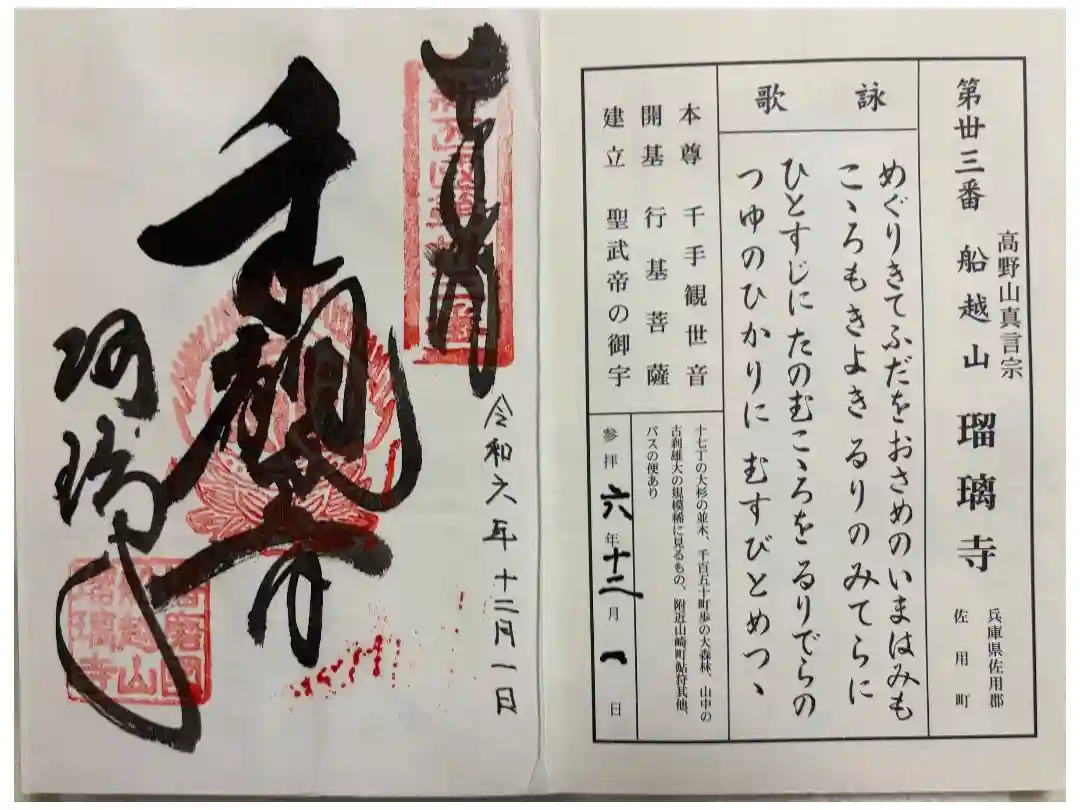 高野山真言宗
第丗三番 船越山 瑠璃寺
兵庫県佐用郡
佐用町
詠歌
めぐりきてふだをおさめのいまはみも
こゝろもきよきるりのみてらに
ひとすじにたのむこゝろをるりでらの
つゆのひかりにむすびとめつゝ
本尊 千手観世音
開基 行基菩薩
建立 聖武帝の御宇
十七丁の大杉の並木、千百五十町歩の大森林、山中の
古刹雄大の規模稀に見るもの、附近山崎町鮎狩其他、
バスの便あり
参拝六年十二月一日
令和六年十二月一日
播磨國
船越山
瑠璃寺